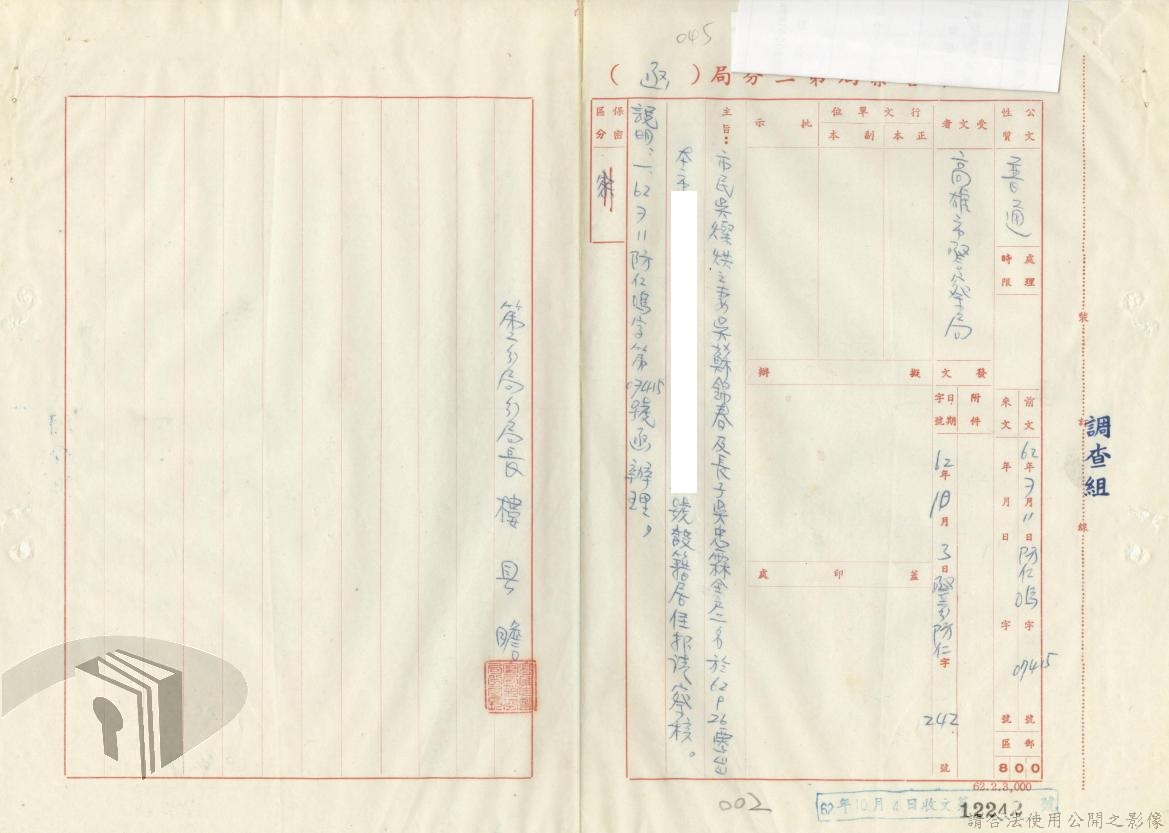 045
局（函）
公文性質
普通
處理時限
前文
62年3月11日防仁鳴字07415號
來文
年月日字號
郵區
800
受文者
高雄市警察局
發文
附件
日期字號
62年10月3日
防仁字242號
行文單位
正本
副本
批示
擬辦
蓋印處
主旨：市民吳燦烘之妻吳蘇錦春及長子吳忠霖全戶二名於62 9 26遷出
本市
號設籍居住報請鑒核。
說明：一、62 3 11防仁鳴字第07415號函辦理，
保密區分
第二分局分局長樓具瞻
裝訂線
調查組
62.2.3,000
002
62年10月4日收文第12242號
請合法使用公開之影像